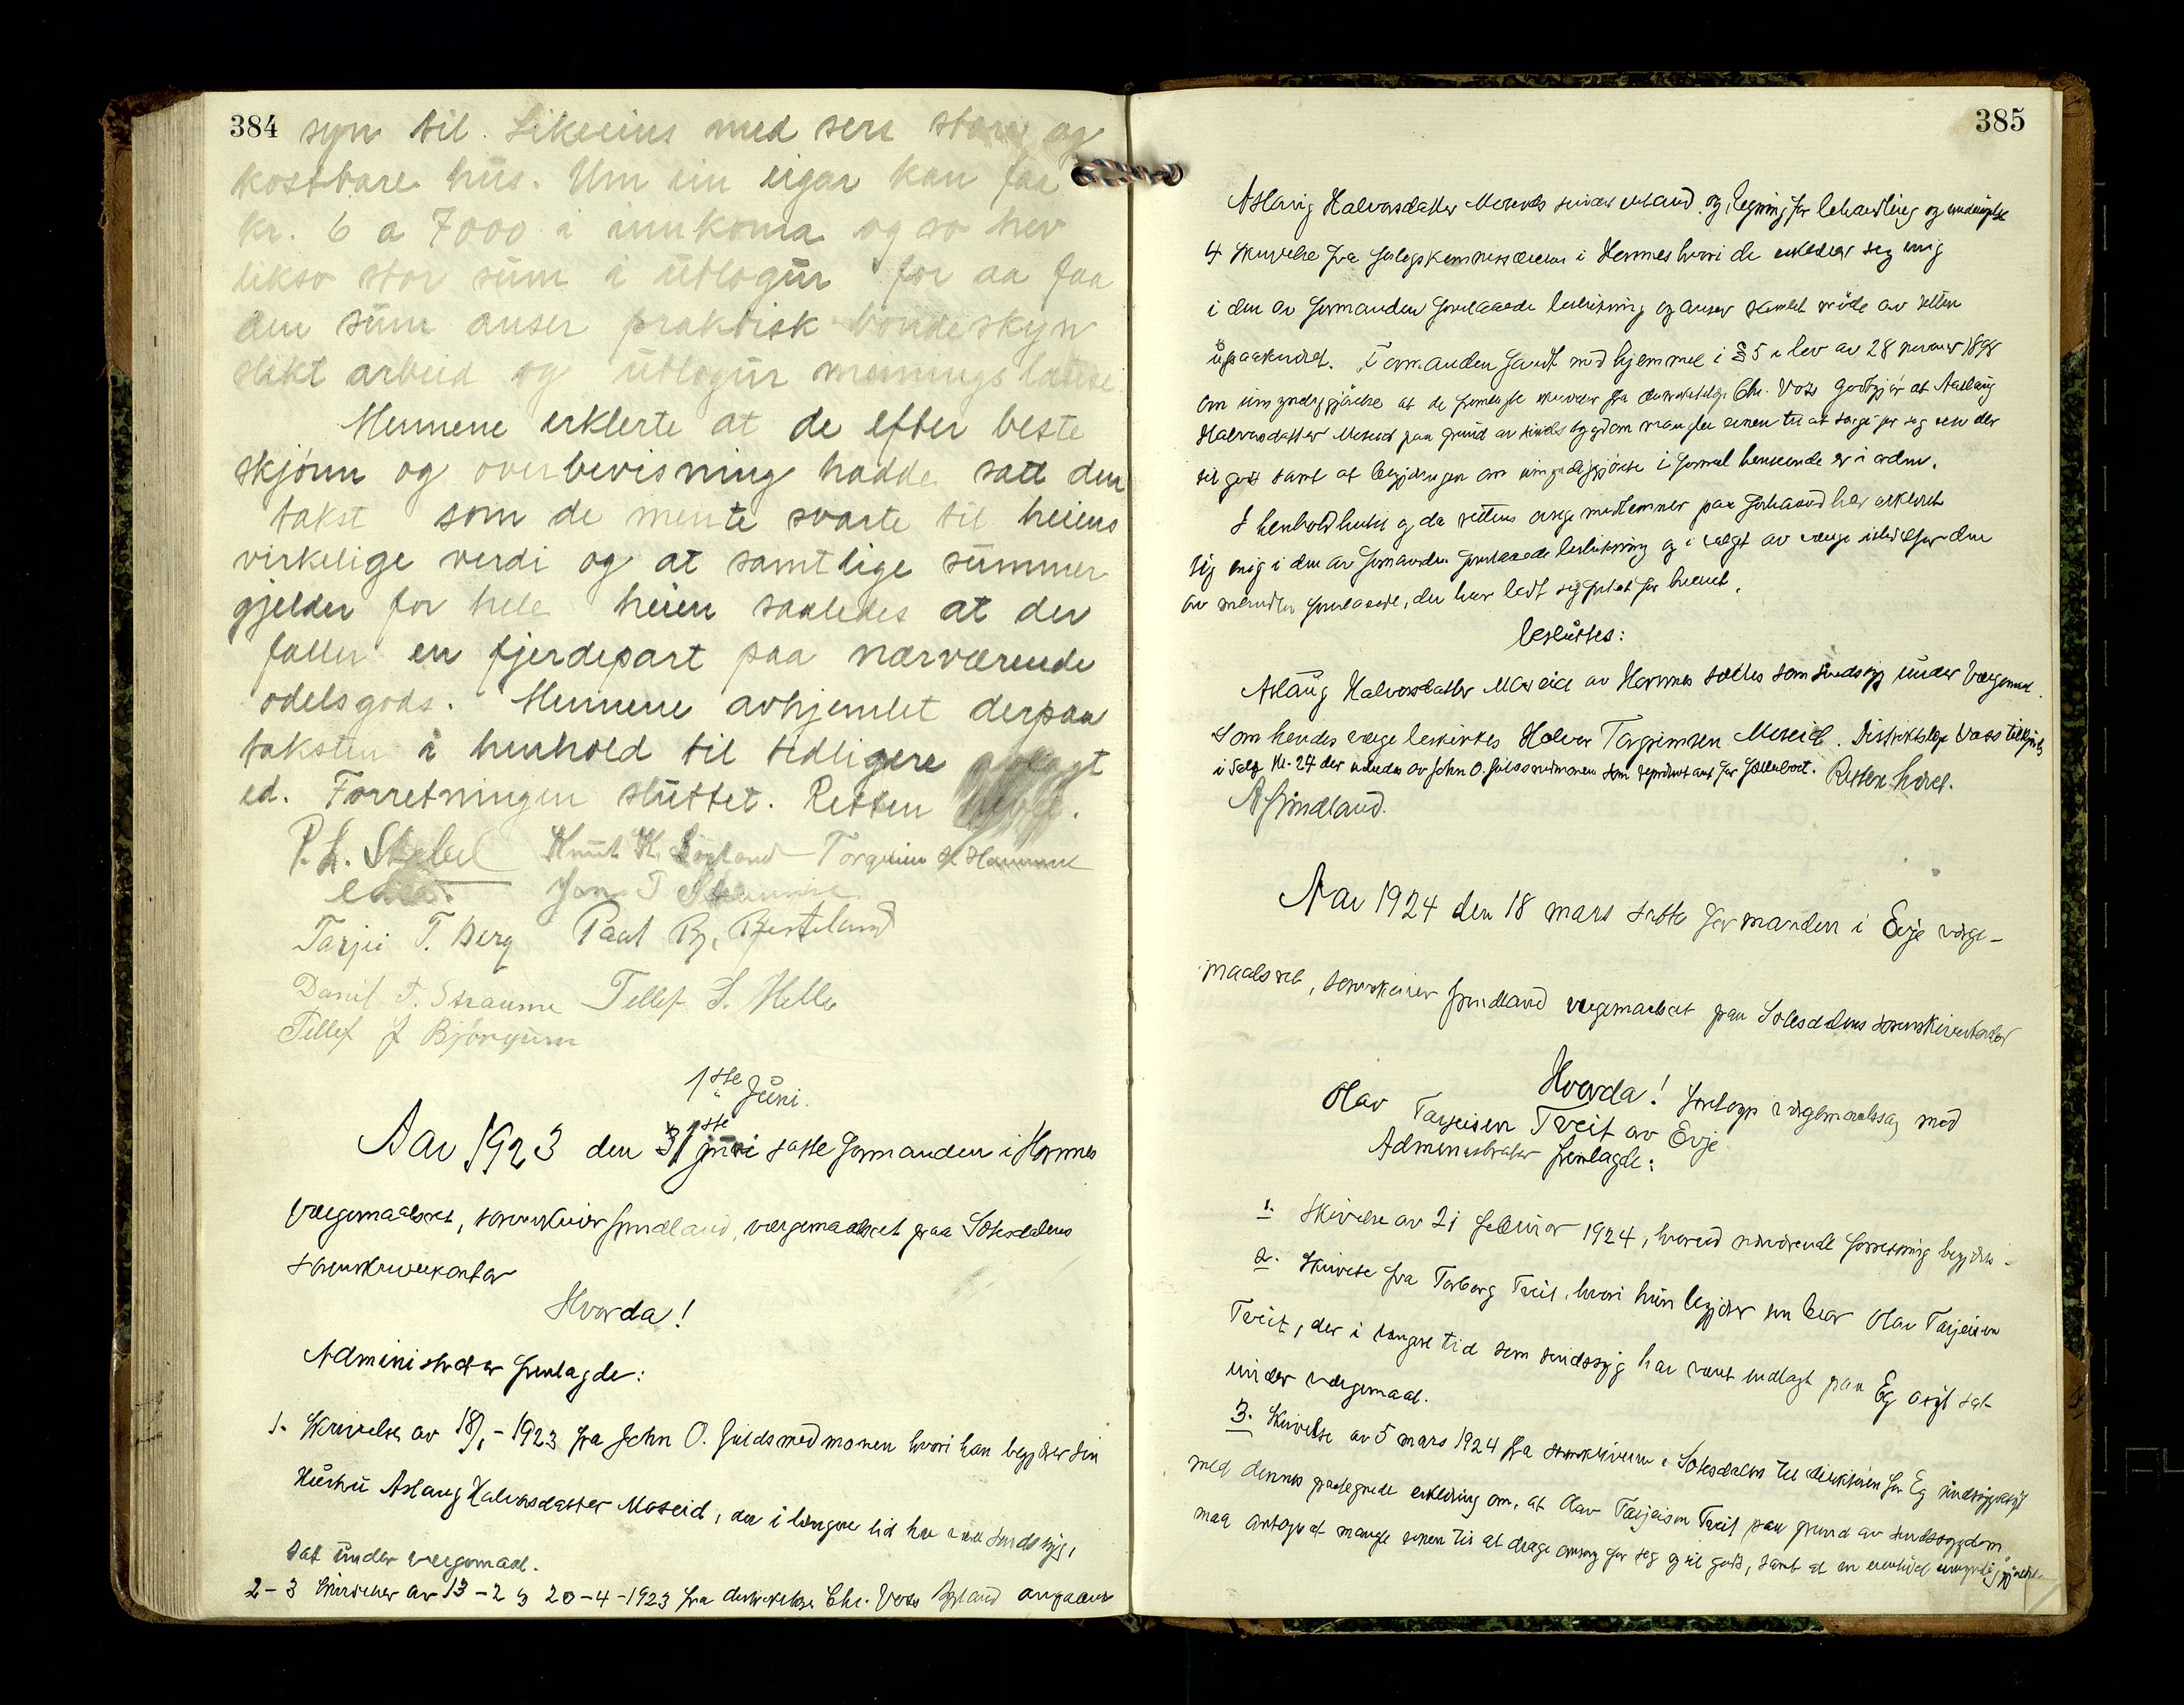 384
syn til. Likeeins med sers store og
kostbare hus. Um ein eigar kan faa
kr. 6 a 7000 i innkoma og so hev
likso stor sum i utlogur for aa faa
den sum anser praktisk bondeskyn
slikt arbeid og utlogur meiningslause.
Mennene erklerte at de efter beste
skjønn og overbevisning hadde satt den
takst som de mente svarte til heiens
virkelige verdi og at samtlige summer
gjelder for hele heien saaledes at der
faller en fjerdepart paa nærværende
odelsgods. Mennene avhjemlet derpaa
taksten i henhold til tidligere avlagt
ed. Forretningen sluttet. Retten hevet.
P. L. Stabel Knut K. Langeland Torgrim
Jon T Straume
Tarjei T. Berg Paal B. Besteland
Daniel T. Straume Tellef S. Helle
Tellef J Bjørgum
1ste Juni.
Aar 1923 den 31 juni satte formanden i Hornnes
vergemaalsret, sorenskriver Spindland, vergemaalsret paa Sætesdalens
sorenskriverkontor
Hvorda!
Administrator fremlagde:
1. Skrivelse av 18/ - 1923 fra John O. Guldsmedmoen hvori han begjærer sin
Hustru Aslaug Halvorsdatter Moseid, der i længere tid har vært sindssyg,
sat under vergemaal.
2-3 Skrivelser av 13-2 og 20-4-1923 fra distriktslæge Chr. Voss Bygland angaaende
385
Aslaug Halvorsdatter Moseids sindstilstand og regning for behandling og undersøkelse
4 Skrivelse fra forligskommissærene i Hornnes hvori de erklærer sig enig
i den av formanden foreslaaede beslutning og anser samlet møte av retten
upaakrevet. Formanden fandt med hjemmel i § 5 i lov av 28 november 1898
om umyndiggjørelse at de fremlagte skrivelser fra distriktslæge Chr. Voss godtgjør at Aaslaug
Halvorsdatter Moseid paa grund av sindssygdom mangler evnen til at sørge for sig selv eller
sit gods samt at begjæringen om umyndiggjørelse i formel henseende er i orden.
I henhold hertil og da rettens øvrige medlemmer paa forhaand har erklæret
sig enig i den av formanden foreslaaede beslutning og i valget av verge istedetfor den
av manden foreslaaede, der har bedt sig fritat for hvervet,
besluttes:
Aslaug Halvorsdatter Moseid av Hornnes sættes som sindssyg under vergemaal.
Som hendes verge beskikkes Halvor Torgrimsen Moseid. Distriktslæge Voss tilkjendes
i salær kr. 27 der utredes av John O. Guldsmedmoen som repræsentant for fællesboet. Retten hævet.
A Spindland.
Aar 1924 den 18 mars satte formanden i Evje verge-
maalsret, sorenskriver Spindland vergemaalsret paa Sætesdalens sorenskriverkontor
Hvorda! foretoges vergemaalssag mod
Olav Tarjeisen Treit av Evje
Administrator fremlagde:
1. Skrivelse av 21 februar 1924, hvorved nærværende forretning begjæres.
2. Skrivelse fra Torborg Treit, hvori hun begjærer sin bror Olav Tarjeisen
Treit, der i længere tid som sindssyg har vært indlagt paa Eg asyl sat
under vergemaal.
3. Skrivelse av 5 mars 1924 fra sorenskriveren i Sætesdalen til direktøren for Eg sindssygeasyl
med dennes paategnede erklæring om, at Olav Tarjeisen Treit paa grund av sindssygdom
maa antages at mangle evnen til at drage omsorg for sig og sit gods, samt at en eventuel umyndiggjørelse